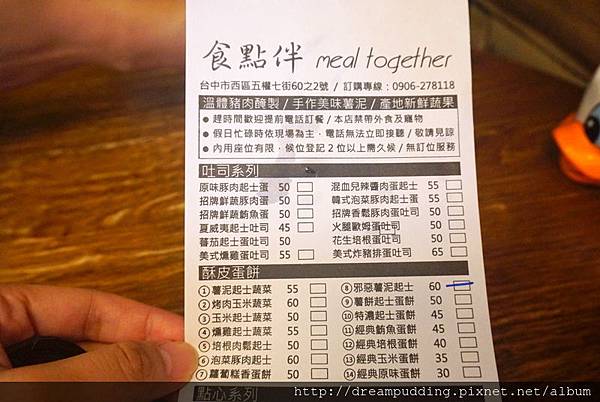 食點伴 meal together
台中市西區五權七街60之2號 / 訂購專線：0906-278118
溫體豬肉醃製 / 手作美味薯泥 / 產地新鮮蔬果
● 趕時間歡迎提前電話訂餐 / 本店禁帶外食及寵物
● 假日忙碌時依現場為主，電話無法立即接聽 / 敬請見諒
● 內用座位有限，候位登記2位以上需久候 / 無訂位服務
吐司系列
原味豚肉起士蛋 50 混血兒辣醬肉蛋起士 55
招牌鮮蔬豚肉蛋 50 韓式泡菜豚肉起士 55
招牌鮮蔬鮪魚蛋 50 招牌香鬆豚肉蛋吐司 50
夏威夷起士吐司 45 火腿歐姆蛋吐司 50
蕃茄起士蛋吐司 50 花生培根蛋吐司 50
美式燻雞蛋吐司 55 美式炸豬排蛋吐司 65
酥皮蛋餅
①薯泥起士蔬菜 55 ⑧邪惡薯泥起士 60
②烤肉玉米蔬菜 60 ⑨薯餅起士蛋餅 50
③玉米起士蔬菜 50 ⑩特濃起士蛋餅 45
④燻雞起士蔬菜 55 ⑪經典鮪魚蛋餅 45
⑤培根肉鬆起士 50 ⑫經典培根蛋餅 40
⑥泡菜豚肉起士 60 ⑬經典玉米蛋餅 35
⑦蘿蔔糕香蛋餅 50 ⑭經典原味蛋餅 30
點心系列
http://dreampudding.pixnet.net/album